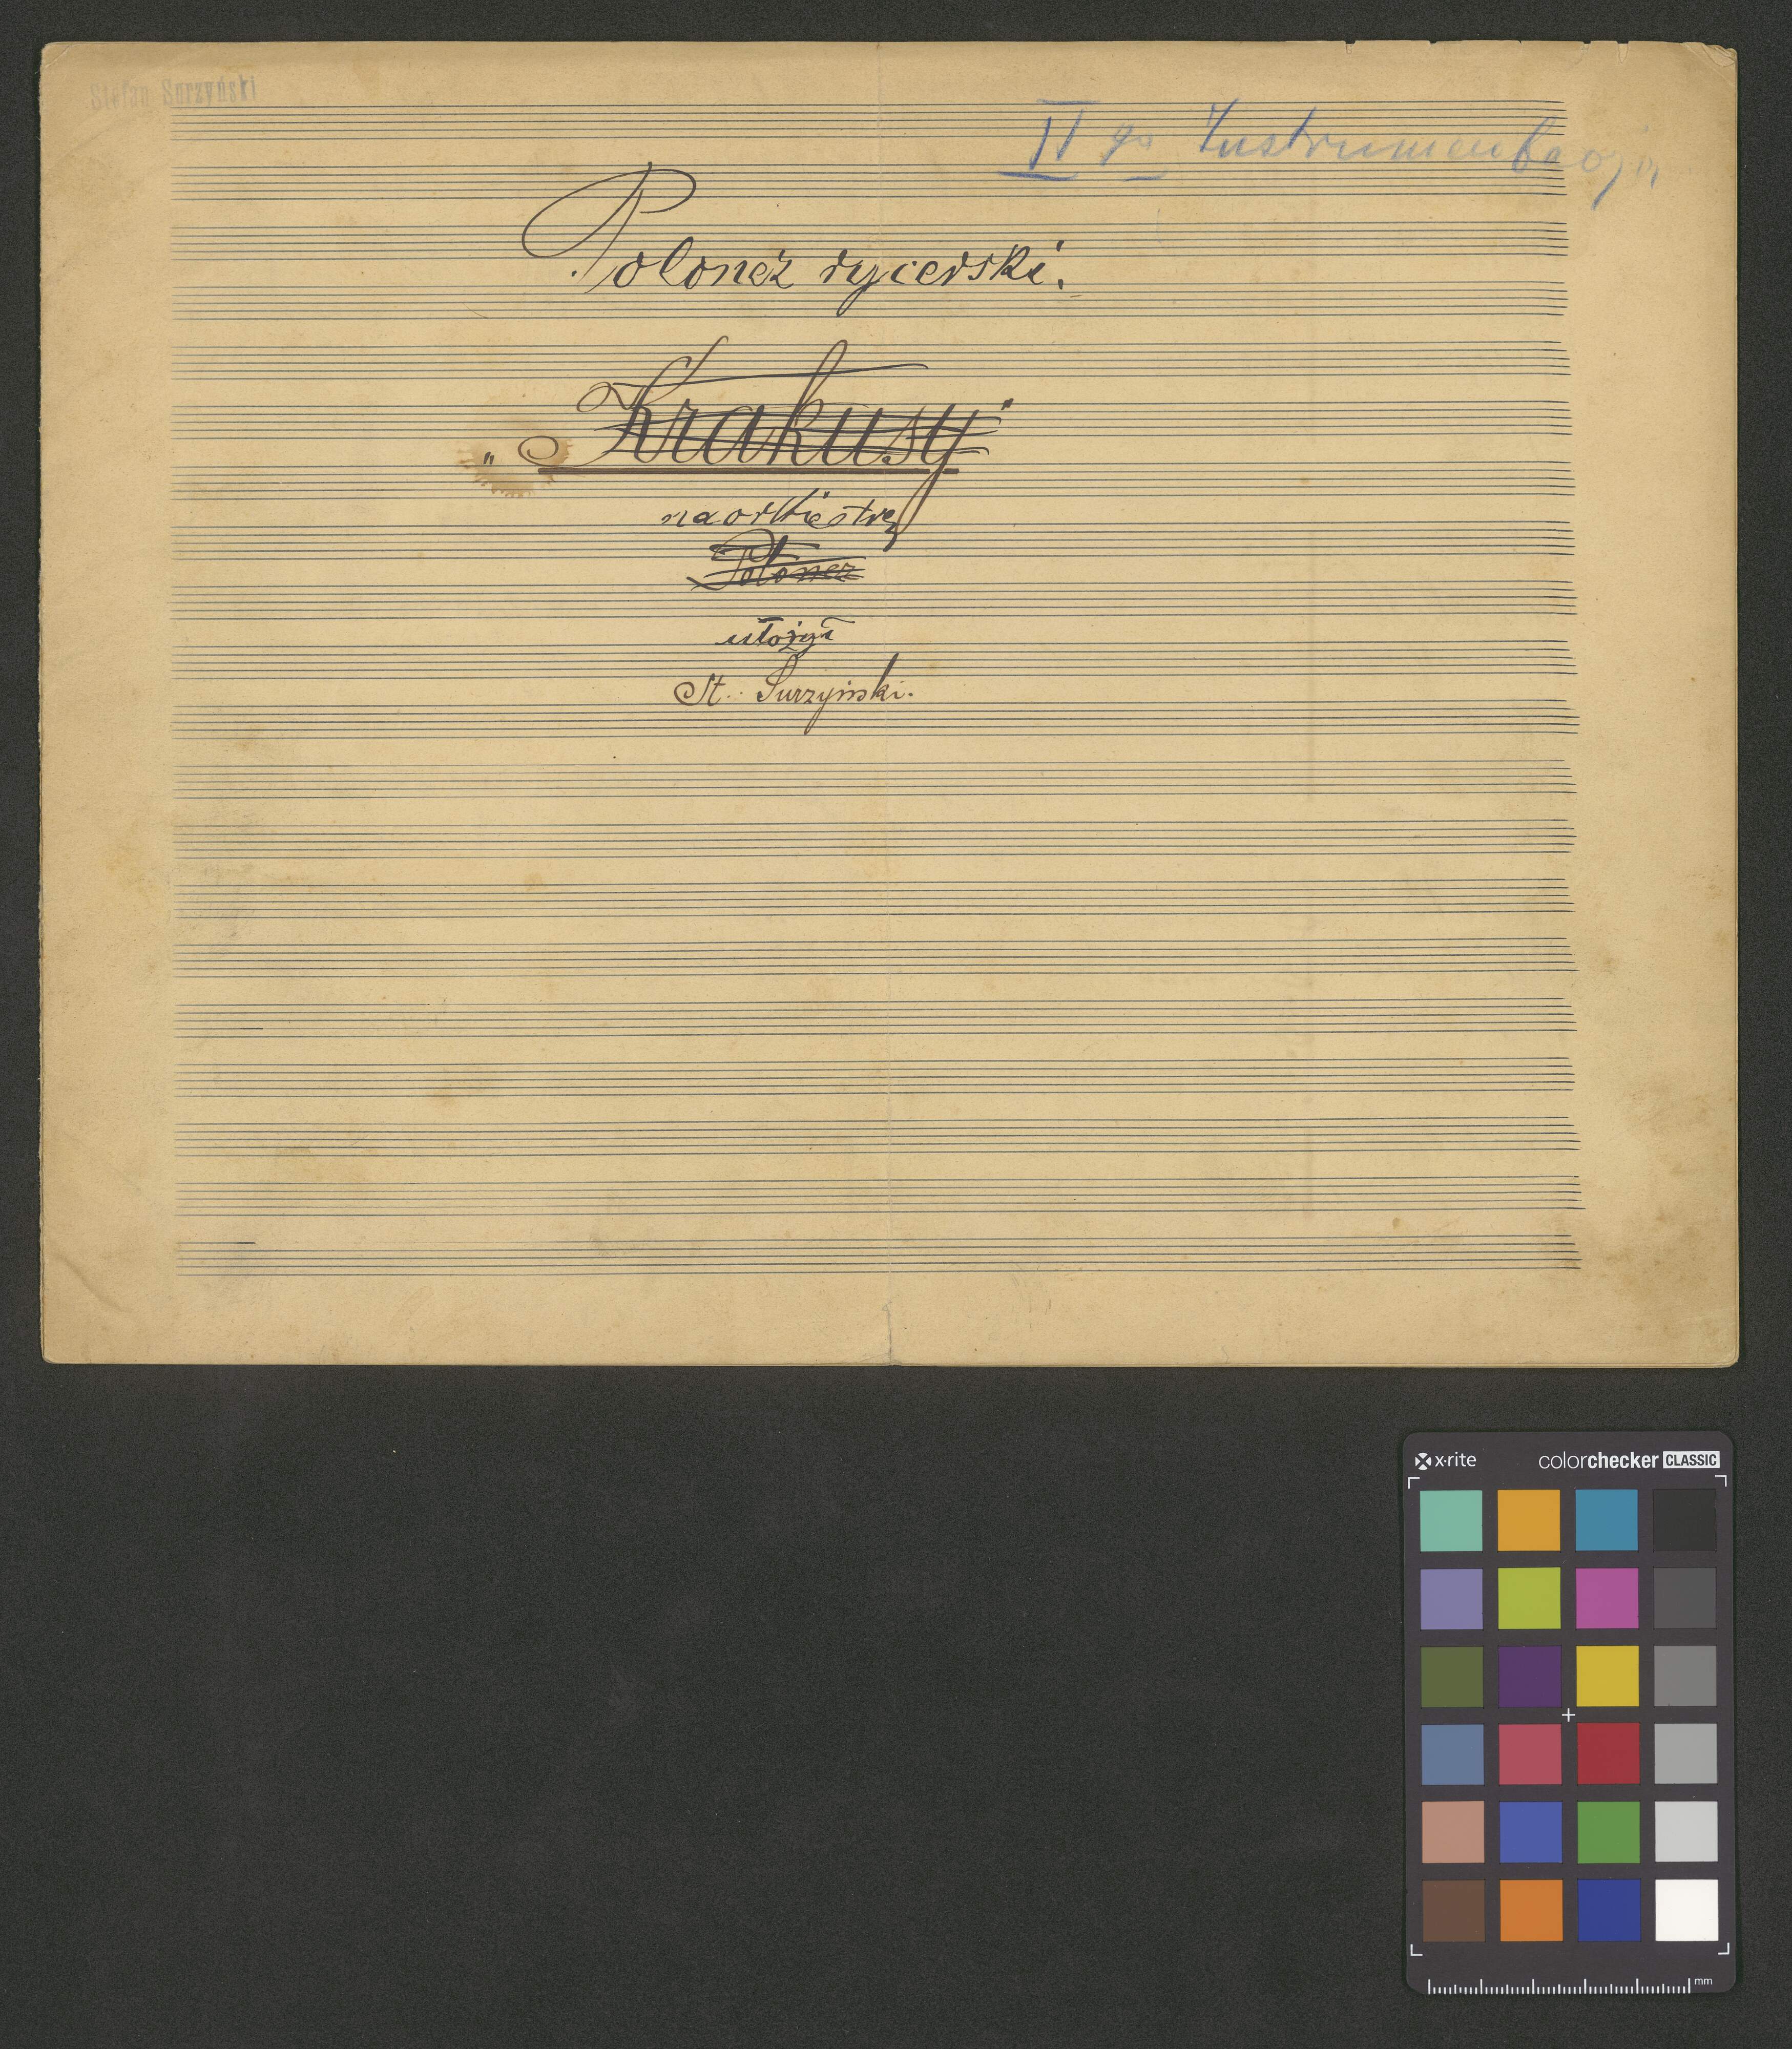 Stefan Surzyński
II ga Instrumentacja
Polonez rycerski.
„Krakusy"
na orkiestrę
Polonez
ułożył
St. Surzyński.
x·rite colorchecker CLASSIC
mm